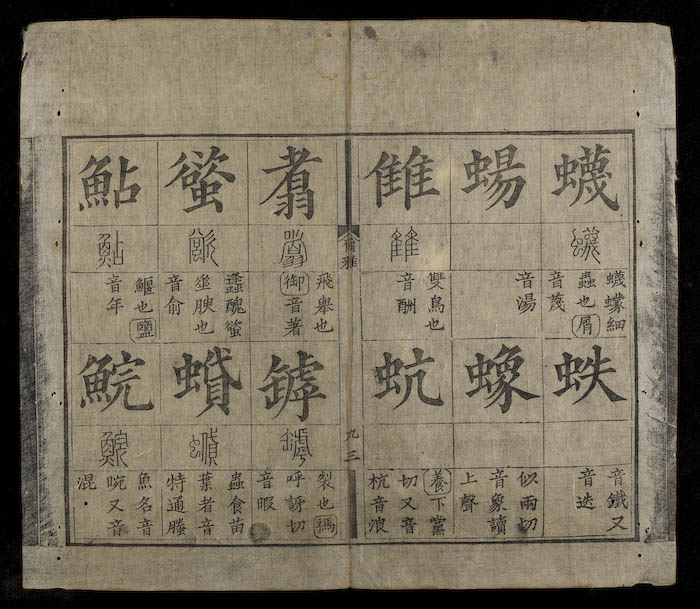 蠛
蠛蠓細
蟲也屑
音蔑
蜴
音湯
雔
雙鳥也
音酬
蛈
音鐵又
音迭
蟓
似兩切
音象讀
上聲
蚢
養下黨
切又音
杭音浪
爾雅
九三
翥
飛舉也
御音著
螸
蠭醜螸
垂腴也
音俞
鮎
鰋也鹽
音年
罅
裂也禡
呼訝切
音暇
蟘
蟲食苗
葉者音
特通螣
鯇
魚名音
睆又音
混